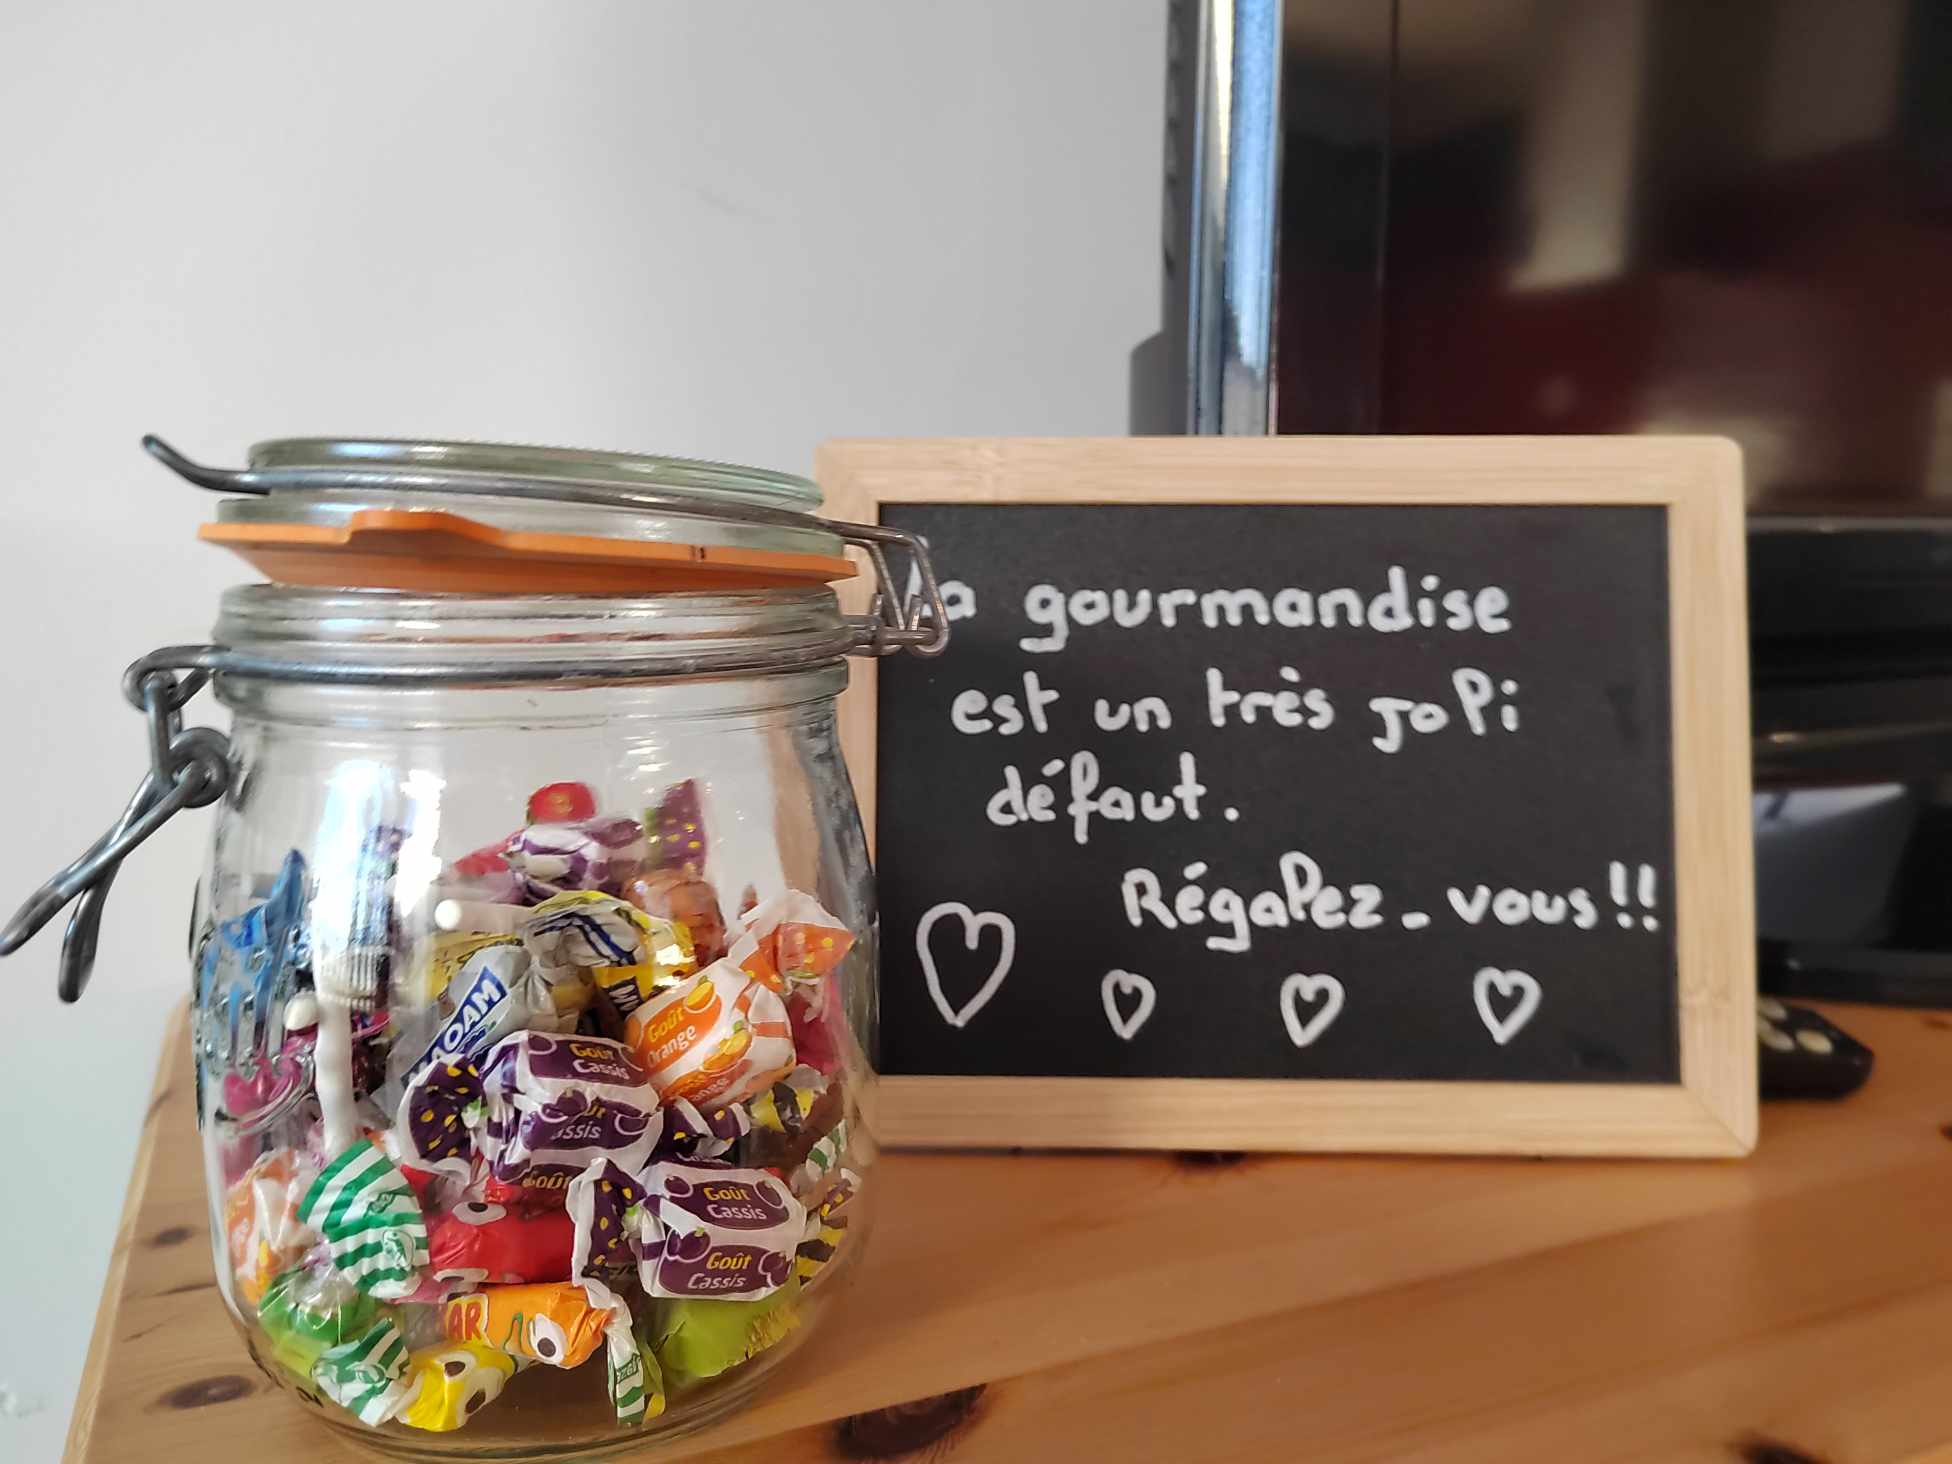 La gourmandise
est un très joli
défaut.
Régalez-vous!!
MAOAM
Goût
Orange
Goût
Cassis
Goût
Cassis
Goût
Cassis